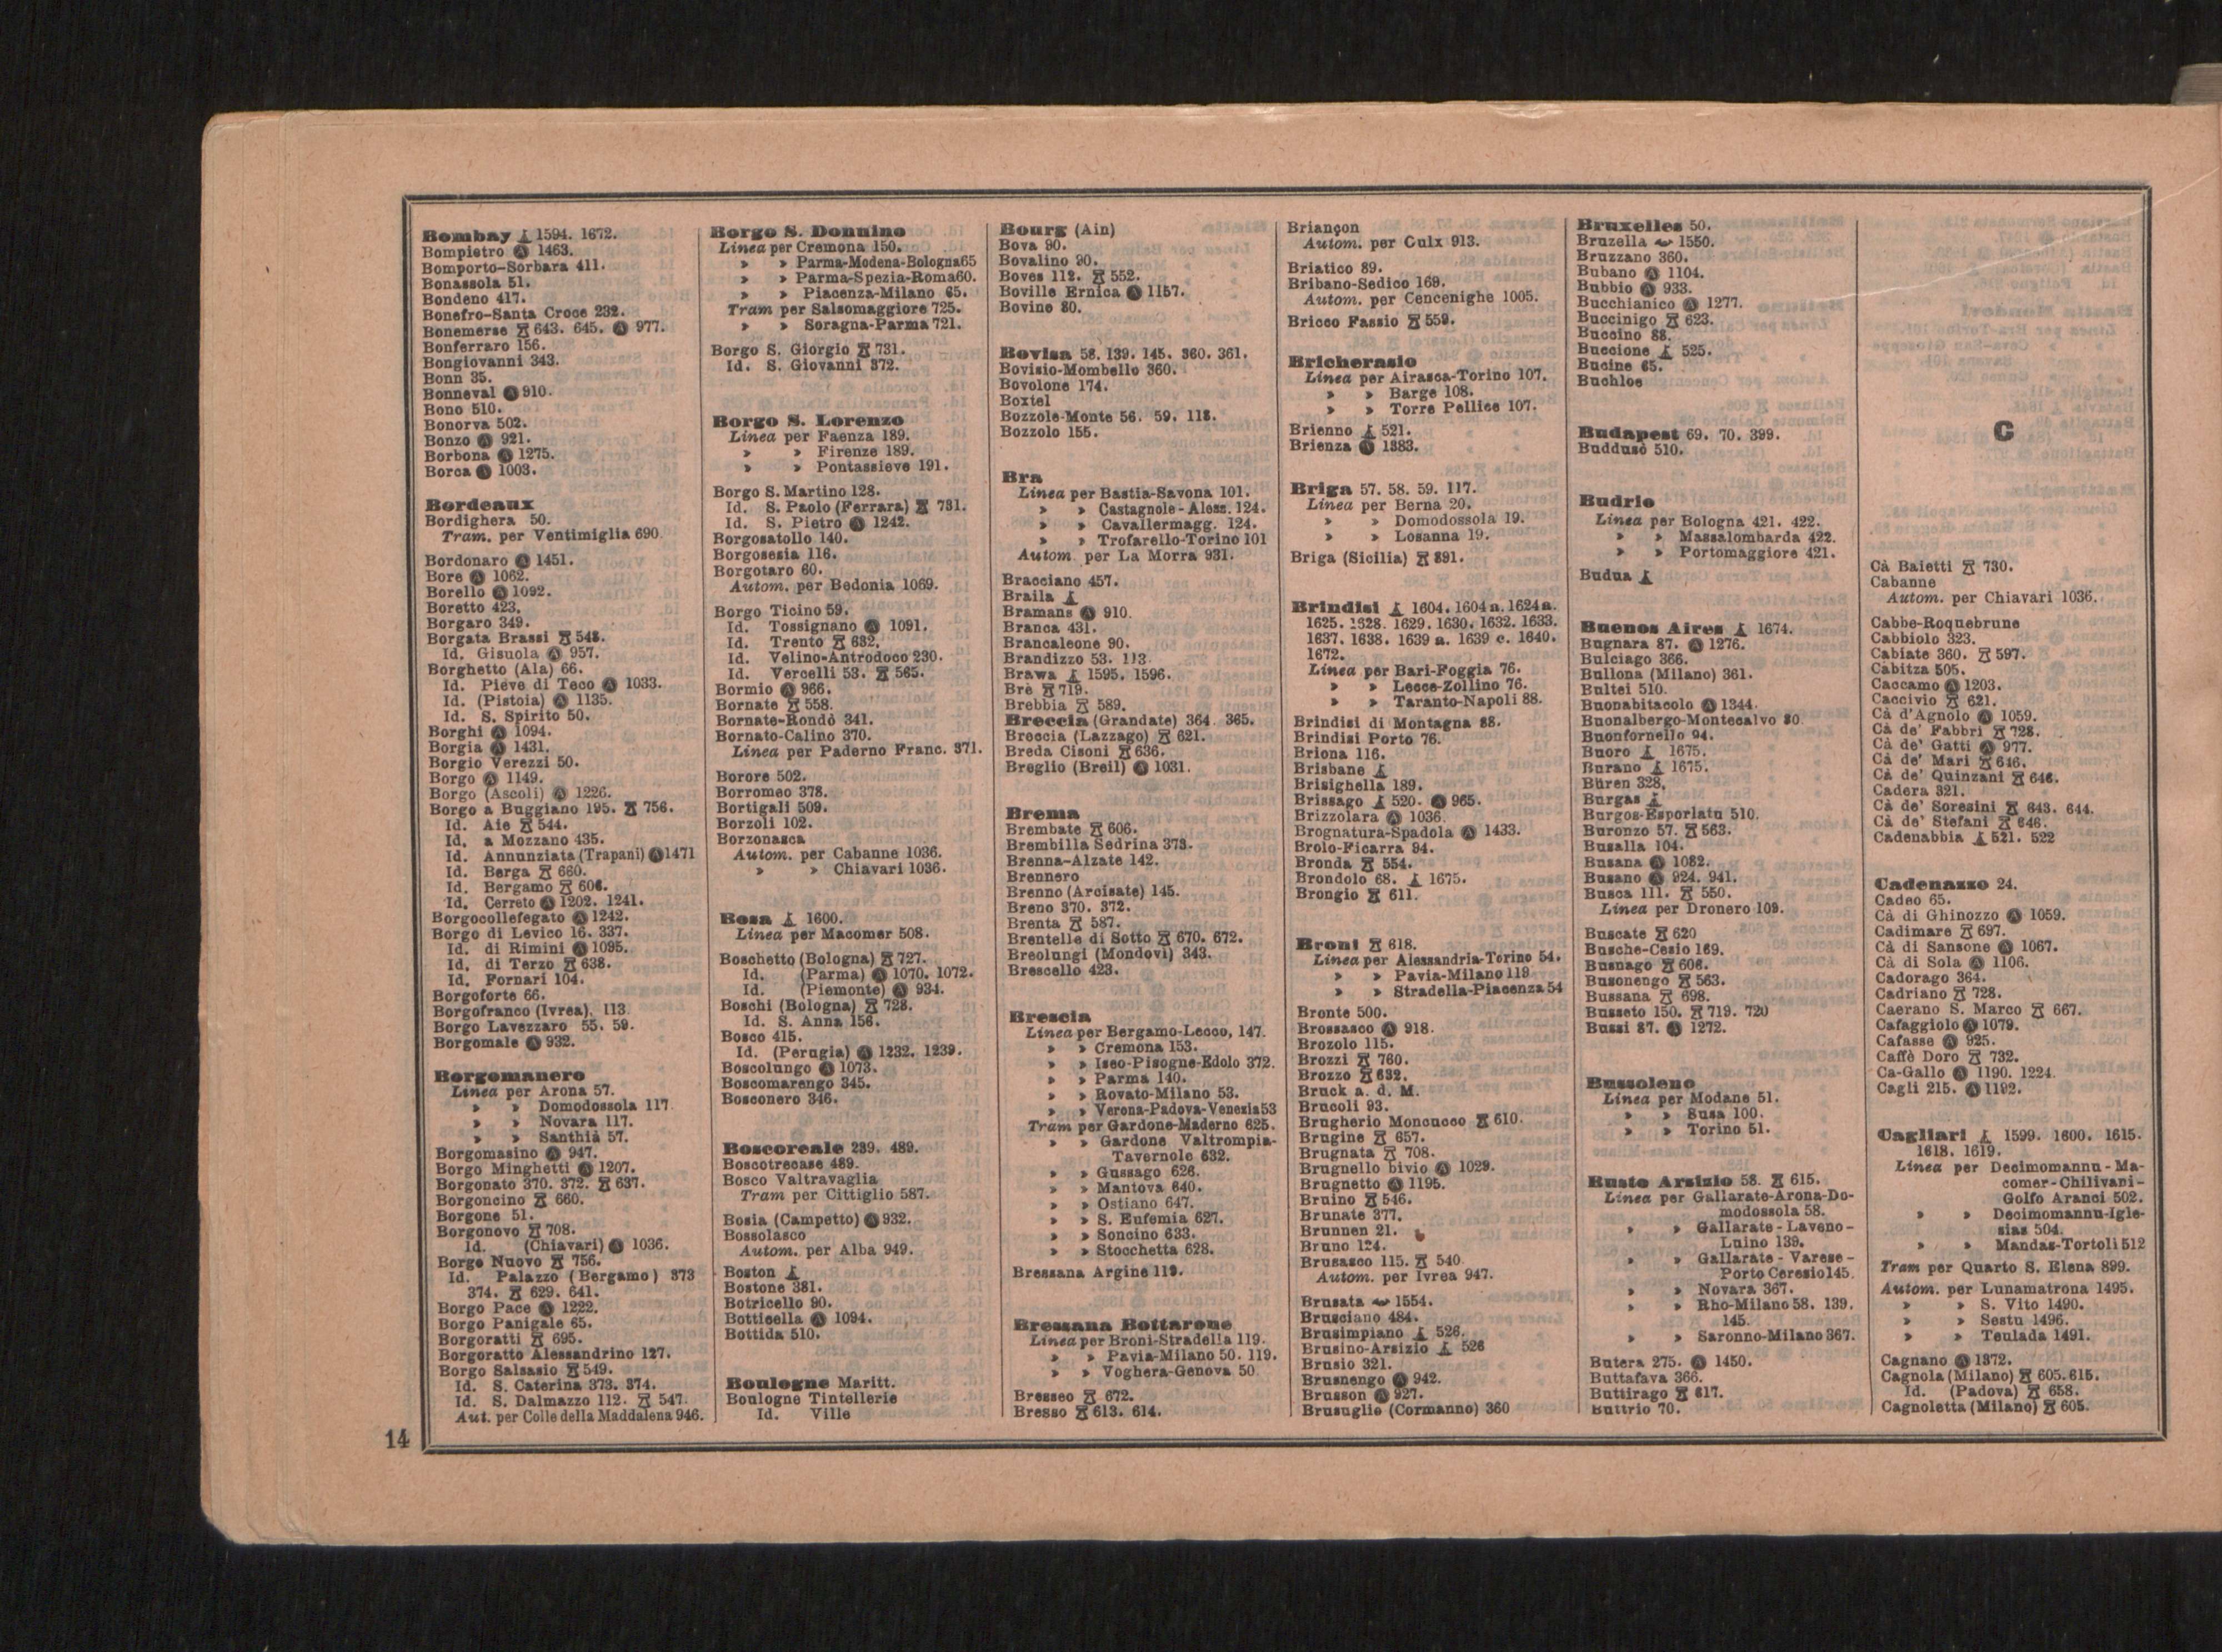 Bombay 1594. 1672.
Bompietro 1463.
Bomporto-Sorbara 411.
Bonassola 51.
Bondeno 417.
Bonefro-Santa Croce 232.
Bonemerse 643. 645. 977.
Bonferraro 156.
Bongiovanni 343.
Bonn 35.
Bonneval 910.
Bono 510.
Bonorva 502.
Bonzo 921.
Borbona 1275.
Borca 1003.
Bordeaux
Bordighera 50.
Tram. per Ventimiglia 690.
Bordonaro 1451.
Bore 1062.
Borello 1092.
Boretto 423.
Borgaro 349.
Borgata Brassi 548.
Id. Gisuola 957.
Borghetto (Ala) 66.
Id. Pieve di Teco 1033.
Id. (Pistoia) 1135.
Id. S. Spirito 50.
Borghi 1094.
Borgia 1431.
Borgio Verezzi 50.
Borgo 1149.
Borgo (Ascoli) 1226.
Borgo a Buggiano 195. 756.
Id. Aie 544.
Id. a Mozzano 435.
Id. Annunziata (Trapani) 1471
Id. Berga 660.
Id. Bergamo 606.
Id. Cerreto 1202. 1241.
Borgocollefegato 1242.
Borgo di Levico 16. 337.
Id. di Rimini 1095.
Id. di Terzo 638.
Id. Fornari 104.
Borgoforte 66.
Borgofranco (Ivrea). 113
Borgo Lavezzaro 55. 59.
Borgomale 932.
Borgomanero
Linea per Arona 57.
» » Domodossola 117
» » Novara 117.
» » Santhià 57.
Borgomasino 947.
Borgo Minghetti 1207.
Borgonato 370. 372. 637.
Borgoncino 660.
Borgone 51.
Borgonovo 708.
Id. (Chiavari) 1036.
Borgo Nuovo 756.
Id. Palazzo (Bergamo) 373
374. 629. 641.
Borgo Pace 1222.
Borgo Panigale 65.
Borgoratti 695.
Borgoratto Alessandrino 127.
Borgo Salsasio 549.
Id. S. Caterina 373. 374.
Id. S. Dalmazzo 112. 547.
Aut. per Colle della Maddalena 946.
Borgo S. Donnino
Linea per Cremona 150.
» » Parma-Modena-Bologna 65
» » Parma-Spezia-Roma 60.
» » Piacenza-Milano 65.
Tram per Salsomaggiore 725.
» » Soragna-Parma 721.
Borgo S. Giorgio 731.
Id. S. Giovanni 372.
Borgo S. Lorenzo
Linea per Faenza 189.
» » Firenze 189.
» » Pontassieve 191.
Borgo S. Martino 128.
Id. S. Paolo (Ferrara) 731.
Id. S. Pietro 1242.
Borgosatollo 140.
Borgosesia 116.
Borgotaro 60.
Autom. per Bedonia 1069.
Borgo Ticino 59.
Id. Tossignano 1091.
Id. Trento 632.
Id. Velino-Antrodoco 230.
Id. Vercelli 53. 565.
Bormio 966.
Bornate 558.
Bornate-Rondò 341.
Bornato-Calino 370.
Linea per Paderno Franc. 371.
Borore 502.
Borromeo 378.
Bortigali 509.
Borzoli 102.
Borzonasca
Autom. per Cabanne 1036.
» » Chiavari 1036.
Bosa 1600.
Linea per Macomer 508.
Boschetto (Bologna) 727.
Id. (Parma) 1070. 1072.
Id. (Piemonte) 934.
Boschi (Bologna) 728.
Id. S. Anna 156.
Bosco 415.
Id. (Perugia) 1232. 1239.
Boscolungo 1073.
Boscomarengo 345.
Bosconero 346.
Boscoreale 239. 489.
Boscotrecase 489.
Bosco Valtravaglia
Tram per Cittiglio 587.
Bosia (Campetto) 932.
Bossolasco
Autom. per Alba 949.
Boston
Bostone 381.
Botricello 90.
Botticella 1094.
Bottida 510.
Boulogne Maritt.
Boulogne Tintellerie
Id. Ville
Bourg (Ain)
Bova 90.
Bovalino 90.
Boves 112. 552.
Boville Ernica 1157.
Bovino 80.
Bovisa 58. 139. 145. 360. 361.
Bovisio-Mombello 360.
Bovolone 174.
Boxtel
Bozzole-Monte 56. 59. 118.
Bozzolo 155.
Bra
Linea per Bastia-Savona 101.
» » Castagnole-Aless. 124.
» » Cavallermagg. 124.
» » Trofarello-Torino 101
Autom. per La Morra 931.
Bracciano 457.
Braila
Bramans 910.
Branca 431.
Brancaleone 90.
Brandizzo 53. 113.
Brawa 1595. 1596.
Brè 719.
Brebbia 589.
Breccia (Grandate) 364. 365.
Breccia (Lazzago) 621.
Breda Cisoni 636.
Breglio (Breil) 1031.
Brema
Brembate 606.
Brembilla Sedrina 373.
Brenna-Alzate 142.
Brennero
Brenno (Arcisate) 145.
Breno 370. 372.
Brenta 587.
Brentelle di Sotto 670. 672.
Breolungi (Mondovì) 343.
Brescello 423.
Brescia
Linea per Bergamo-Lecco, 147.
» » Cremona 153.
» » Iseo-Pisogne-Edolo 372.
» » Parma 140.
» » Rovato-Milano 53.
» » Verona-Padova-Venezia 53
Tram per Gardone-Maderno 625.
» » Gardone Valtrompia-
Tavernole 632.
» » Gussago 626.
» » Mantova 640.
» » Ostiano 647.
» » S. Eufemia 627.
» » Soncino 633.
» » Stocchetta 628.
Bressana Argine 119.
Bressana Bottarone
Linea per Broni-Stradella 119.
» » Pavia-Milano 50. 119.
» » Voghera-Genova 50
Bresseo 672.
Bresso 613. 614.
Briançon
Autom. per Oulx 913.
Briatico 89.
Bribano-Sedico 169.
Autom. per Cencenighe 1005.
Bricco Fassio 559.
Bricherasio
Linea per Airasca-Torino 107.
» » Barge 108.
» » Torre Pellice 107.
Brienno 521.
Brienza 1383.
Briga 57. 58. 59. 117.
Linea per Berna 20.
» » Domodossola 19.
» » Losanna 19.
Briga (Sicilia) 891.
Brindisi 1604. 1604 a. 1624 a.
1625. 1628. 1629. 1630. 1632. 1633.
1637. 1638. 1639 a. 1639 c. 1640.
1672.
Linea per Bari-Foggia 76.
» » Lecce-Zollino 76.
» » Taranto-Napoli 88.
Brindisi di Montagna 88.
Brindisi Porto 76.
Briona 116.
Brisbane
Brisighella 189.
Brissago 520. 965.
Brizzolara 1036.
Brognatura-Spadola 1433.
Brolo-Ficarra 94.
Bronda 554.
Brondolo 68. 1675.
Brongio 611.
Broni 618.
Linea per Alessandria-Torino 54.
» » Pavia-Milano 119
» » Stradella-Piacenza 54
Bronte 500.
Brossasco 918.
Brozolo 115.
Brozzi 760.
Brozzo 632.
Bruck a. d. M.
Brucoli 93.
Brugherio Moncucco 610.
Brugine 657.
Brugnata 708.
Brugnello bivio 1029.
Brugnetto 1195.
Bruino 546.
Brunate 377.
Brunnen 21.
Bruno 124.
Brusasco 115. 540.
Autom. per Ivrea 947.
Brusata 1554.
Brusciano 484.
Brusimpiano 526.
Brusino-Arsizio 526
Brusio 321.
Brusnengo 942.
Brusson 927.
Brusuglio (Cormanno) 360
Bruxelles 50.
Bruzella 1550.
Bruzzano 360.
Bubano 1104.
Bubbio 933.
Bucchianico 1277.
Buccinigo 623.
Buccino 88.
Buccione 525.
Bucine 65.
Buchloe
Budapest 69. 70. 399.
Buddusò 510.
Budrio
Linea per Bologna 421. 422.
» » Massalombarda 422.
» » Portomaggiore 421.
Budua
Buenos Aires 1674.
Bugnara 87. 1276.
Bulciago 366.
Bullona (Milano) 361.
Bultei 510.
Buonabitacolo 1344.
Buonalbergo-Montecalvo 80.
Buonfornello 94.
Buoro 1675.
Burano 1675.
Büren 328.
Burgas
Burgos-Esporlatu 510.
Buronzo 57. 563.
Busalla 104.
Busana 1082.
Busano 924. 941.
Busca 111. 550.
Linea per Dronero 109.
Buscate 620
Busche-Cesio 169.
Busnago 606.
Busonengo 563.
Bussana 698.
Busseto 150. 719. 720
Bussi 87. 1272.
Bussoleno
Linea per Modane 51.
» » Susa 100.
» » Torino 51.
Busto Arsizio 58. 615.
Linea per Gallarate-Arona-Do-
modossola 58.
» » Gallarate-Laveno-
Luino 139.
» » Gallarate-Varese-
Porto Ceresio 145.
» » Novara 367.
» » Rho-Milano 58. 139.
145.
» » Saronno-Milano 367.
Butera 275. 1450.
Buttafava 366.
Buttirago 617.
Buttrio 70.
C
Cà Baietti 730.
Cabanne
Autom. per Chiavari 1036.
Cabbe-Roquebrune
Cabbiolo 323.
Cabiate 360. 597.
Cabitza 505.
Caccamo 1203.
Caccivio 621.
Cà d'Agnolo 1059.
Cà de' Fabbri 728.
Cà de' Gatti 977.
Cà de' Mari 646.
Cà de' Quinzani 646.
Cadera 321.
Cà de' Soresini 643. 644.
Cà de' Stefani 646.
Cadenabbia 521. 522
Cadenazzo 24.
Cadeo 65.
Cà di Ghinozzo 1059.
Cadimare 697.
Cà di Sansone 1067.
Cà di Sola 1106.
Cadorago 364.
Cadriano 728.
Caerano S. Marco 667.
Cafaggiolo 1079.
Cafasse 925.
Caffè Doro 732.
Ca-Gallo 1190. 1224.
Cagli 215. 1192.
Cagliari 1599. 1600. 1615.
1618. 1619.
Linea per Decimomannu-Ma-
comer-Chilivani-
Golfo Aranci 502.
» » Decimomannu-Igle-
sias 504.
» » Mandas-Tortolì 512
Tram per Quarto S. Elena 899.
Autom. per Lunamatrona 1495.
» » S. Vito 1490.
» » Sestu 1496.
» » Teulada 1491.
Cagnano 1372.
Cagnola (Milano) 605. 615.
Id. (Padova) 658.
Cagnoletta (Milano) 605.
14